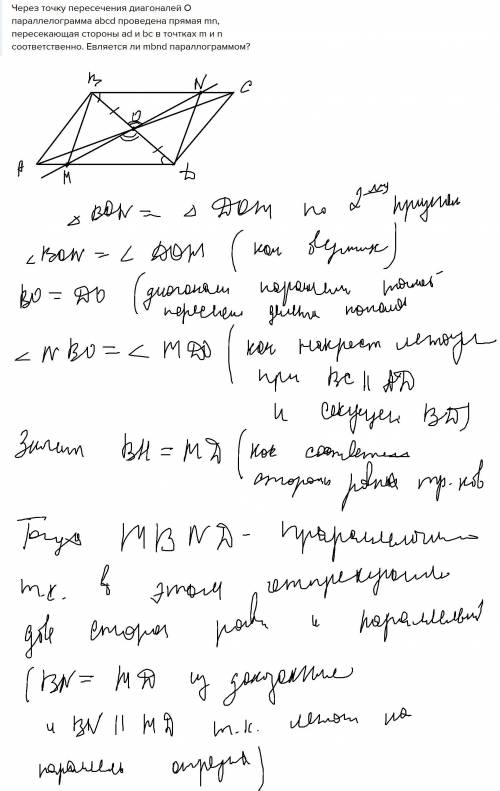 Через точку пересечения диагоналей О
параллелограмма abcd проведена прямая mn,
пересекающая стороны ad и bc в точтках m и n
соответственно. Евляется ли mbnd параллограммом?
B N C
O
A M D
△ BON = △ DOM по 2
∠BON = ∠ DOM (как вертик)
BO = DO (диагонали паралл
пересеч делятся пополам
∠ NBO = ∠ MDO (как накрест лежащ
при BC || AD
и секущей BD)
Значит BN = MD (как соответств
стороны равных тр-ков
Тогда MBND - параллелогр
т.к. в этом четырехугольн
две стороны равн и параллельн
(BN = MD из доказанно
и BN || MD т.к. лежат на
параллель отрезка)